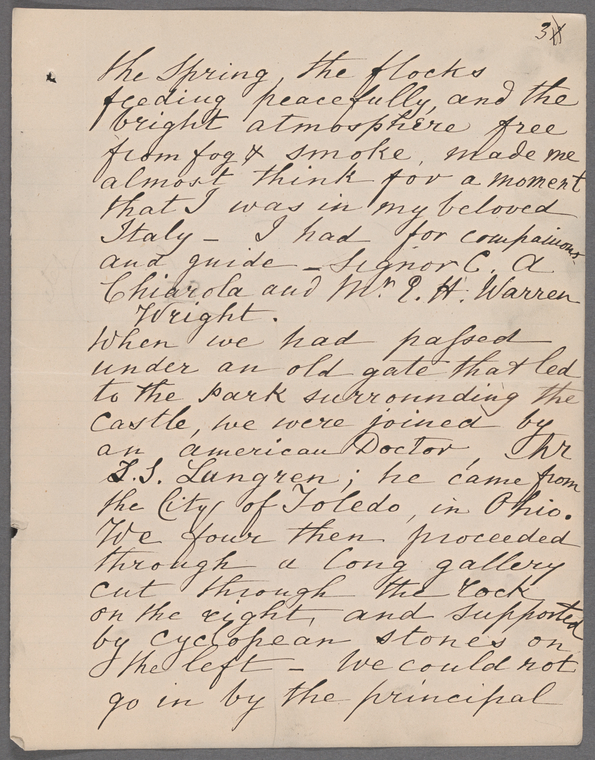 3
the Spring, the flocks
feeding peacefully, and the
bright atmosphere free
from fog & smoke, made me
almost think for a moment
that I was in my beloved
Italy – I had for companions
and guide – Signor C. A
Chiarola and Mr. E. H. Warren
Wright.
When we had passed
under an old gate that led
to the park surrounding the
castle, we were joined by
an american Doctor,
S. S. Lungren; he came from
the City of Toledo, in Ohio.
We four then proceeded
through a long gallery
cut through the rock
on the right, and supported
by cyclopean stones on
the left – We could not
go in by the principal